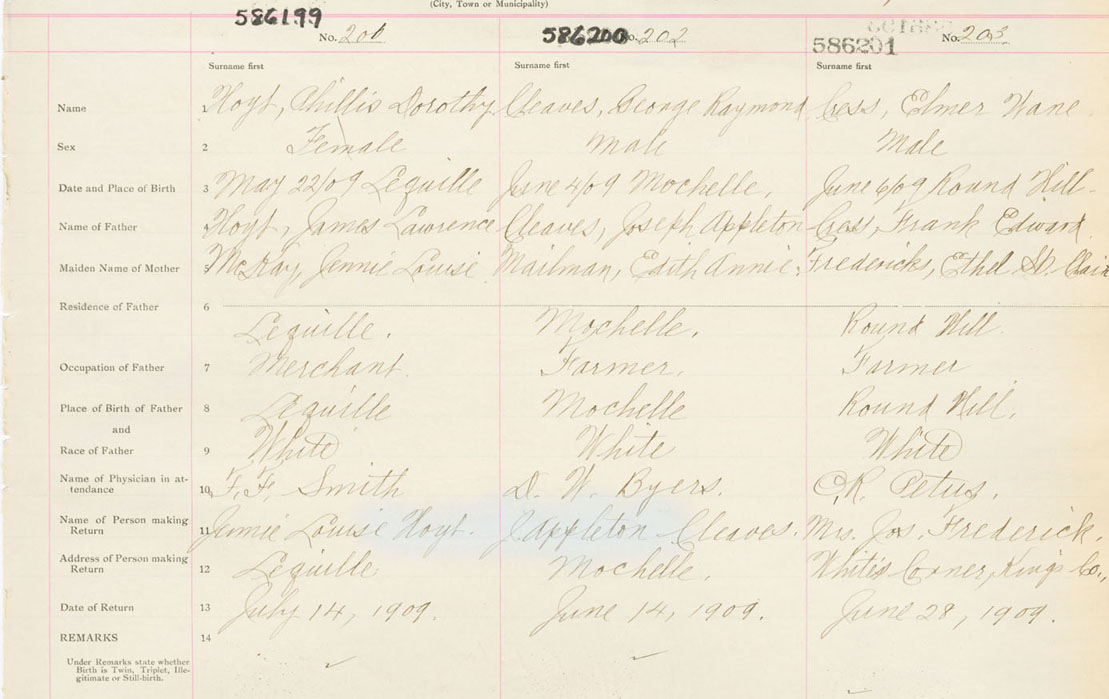 (City, Town or Municipality)
586199 No. 201 586200 No. 202 586201 No. 203
Surname first Surname first Surname first
Name 1 Hoyt, Phillis Dorothy Cleaves, George Raymond Cess, Elmer Vane
Sex 2 Female Male Male
Date and Place of Birth 3 May 22/09 Lequille June 4/09 Mochelle, June 6/09 Round Hill
Name of Father 4 Hoyt, James Lawrence Cleaves, Joseph Appleton Cess, Frank Edward
Maiden Name of Mother 5 McKay, Jennie Louise Mailman, Edith Annie, Fredericks, Ethel St. Clair
Residence of Father 6
Lequille. Mochelle. Round Hill
Occupation of Father 7 Merchant. Farmer. Farmer
Place of Birth of Father 8 Lequille Mochelle Round Hill.
and
Race of Father 9 White White White
Name of Physician in at-
tendance 10 F. F. Smith D. W. Byers. C.R.
Name of Person making
Return 11 Jennie Louise Hoyt. J. Appleton Cleaves. Mrs. Jos. Frederick.
Address of Person making
Return 12 Lequille Mochelle. White's Corner, Kings Co.,
Date of Return 13 July 14, 1909. June 14, 1909. June 28, 1909.
REMARKS 14
Under Remarks state whether
Birth is Twin, Triplet, Ille-
gitimate or Still-birth.